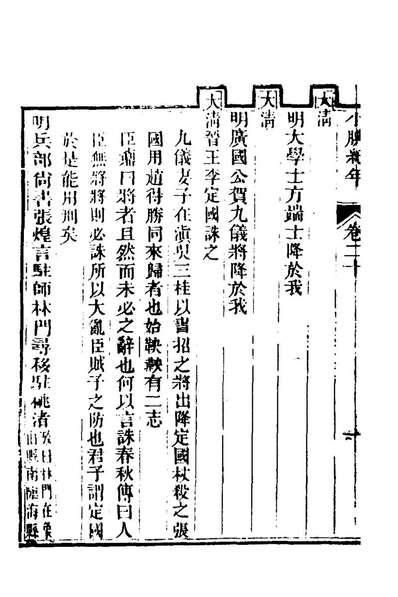 小腆紀年
卷二十
大清
明大學士方端士降於我
大清
明廣國公賀九儀將降於我
大清晉王李定國誅之
九儀妻子在滇吳三桂以書招之將出降定國杖殺之張
國用趙得勝同來歸者也始鞅鞅有二志
臣鼒曰將者且然而未必之辭也何以言誅春秋傳曰人
臣無將將則必誅所以大亂臣賊子之防也君子謂定國
於是能用刑矣
明兵部尚書張煌言駐師林門尋移駐桃渚考曰林門在象
山縣南臨海縣